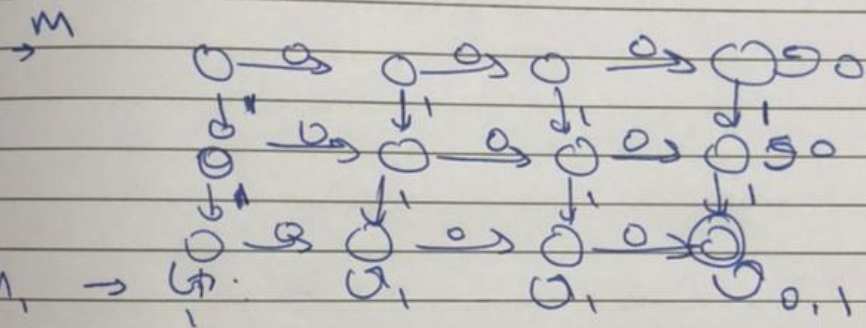 → M
0 0 0 0
1 1 1 1
0 0 0 0
1 1 1 1
0 0 0
1 → 1 1 1 0,1